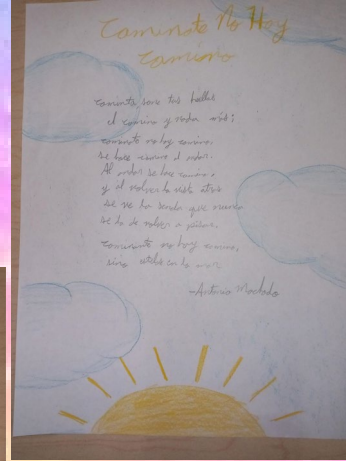 Caminate No Hay
Camino
caminante, son tus huellas
el camino y nada más;
caminante no hay camino,
se hace camino al andar.
Al andar se hace camino,
y al volver la vista atrás
se ve la senda que nunca
se ha de volver a pisar.
caminante no hay camino,
sino estelas en la mar.
-Antonio Machado